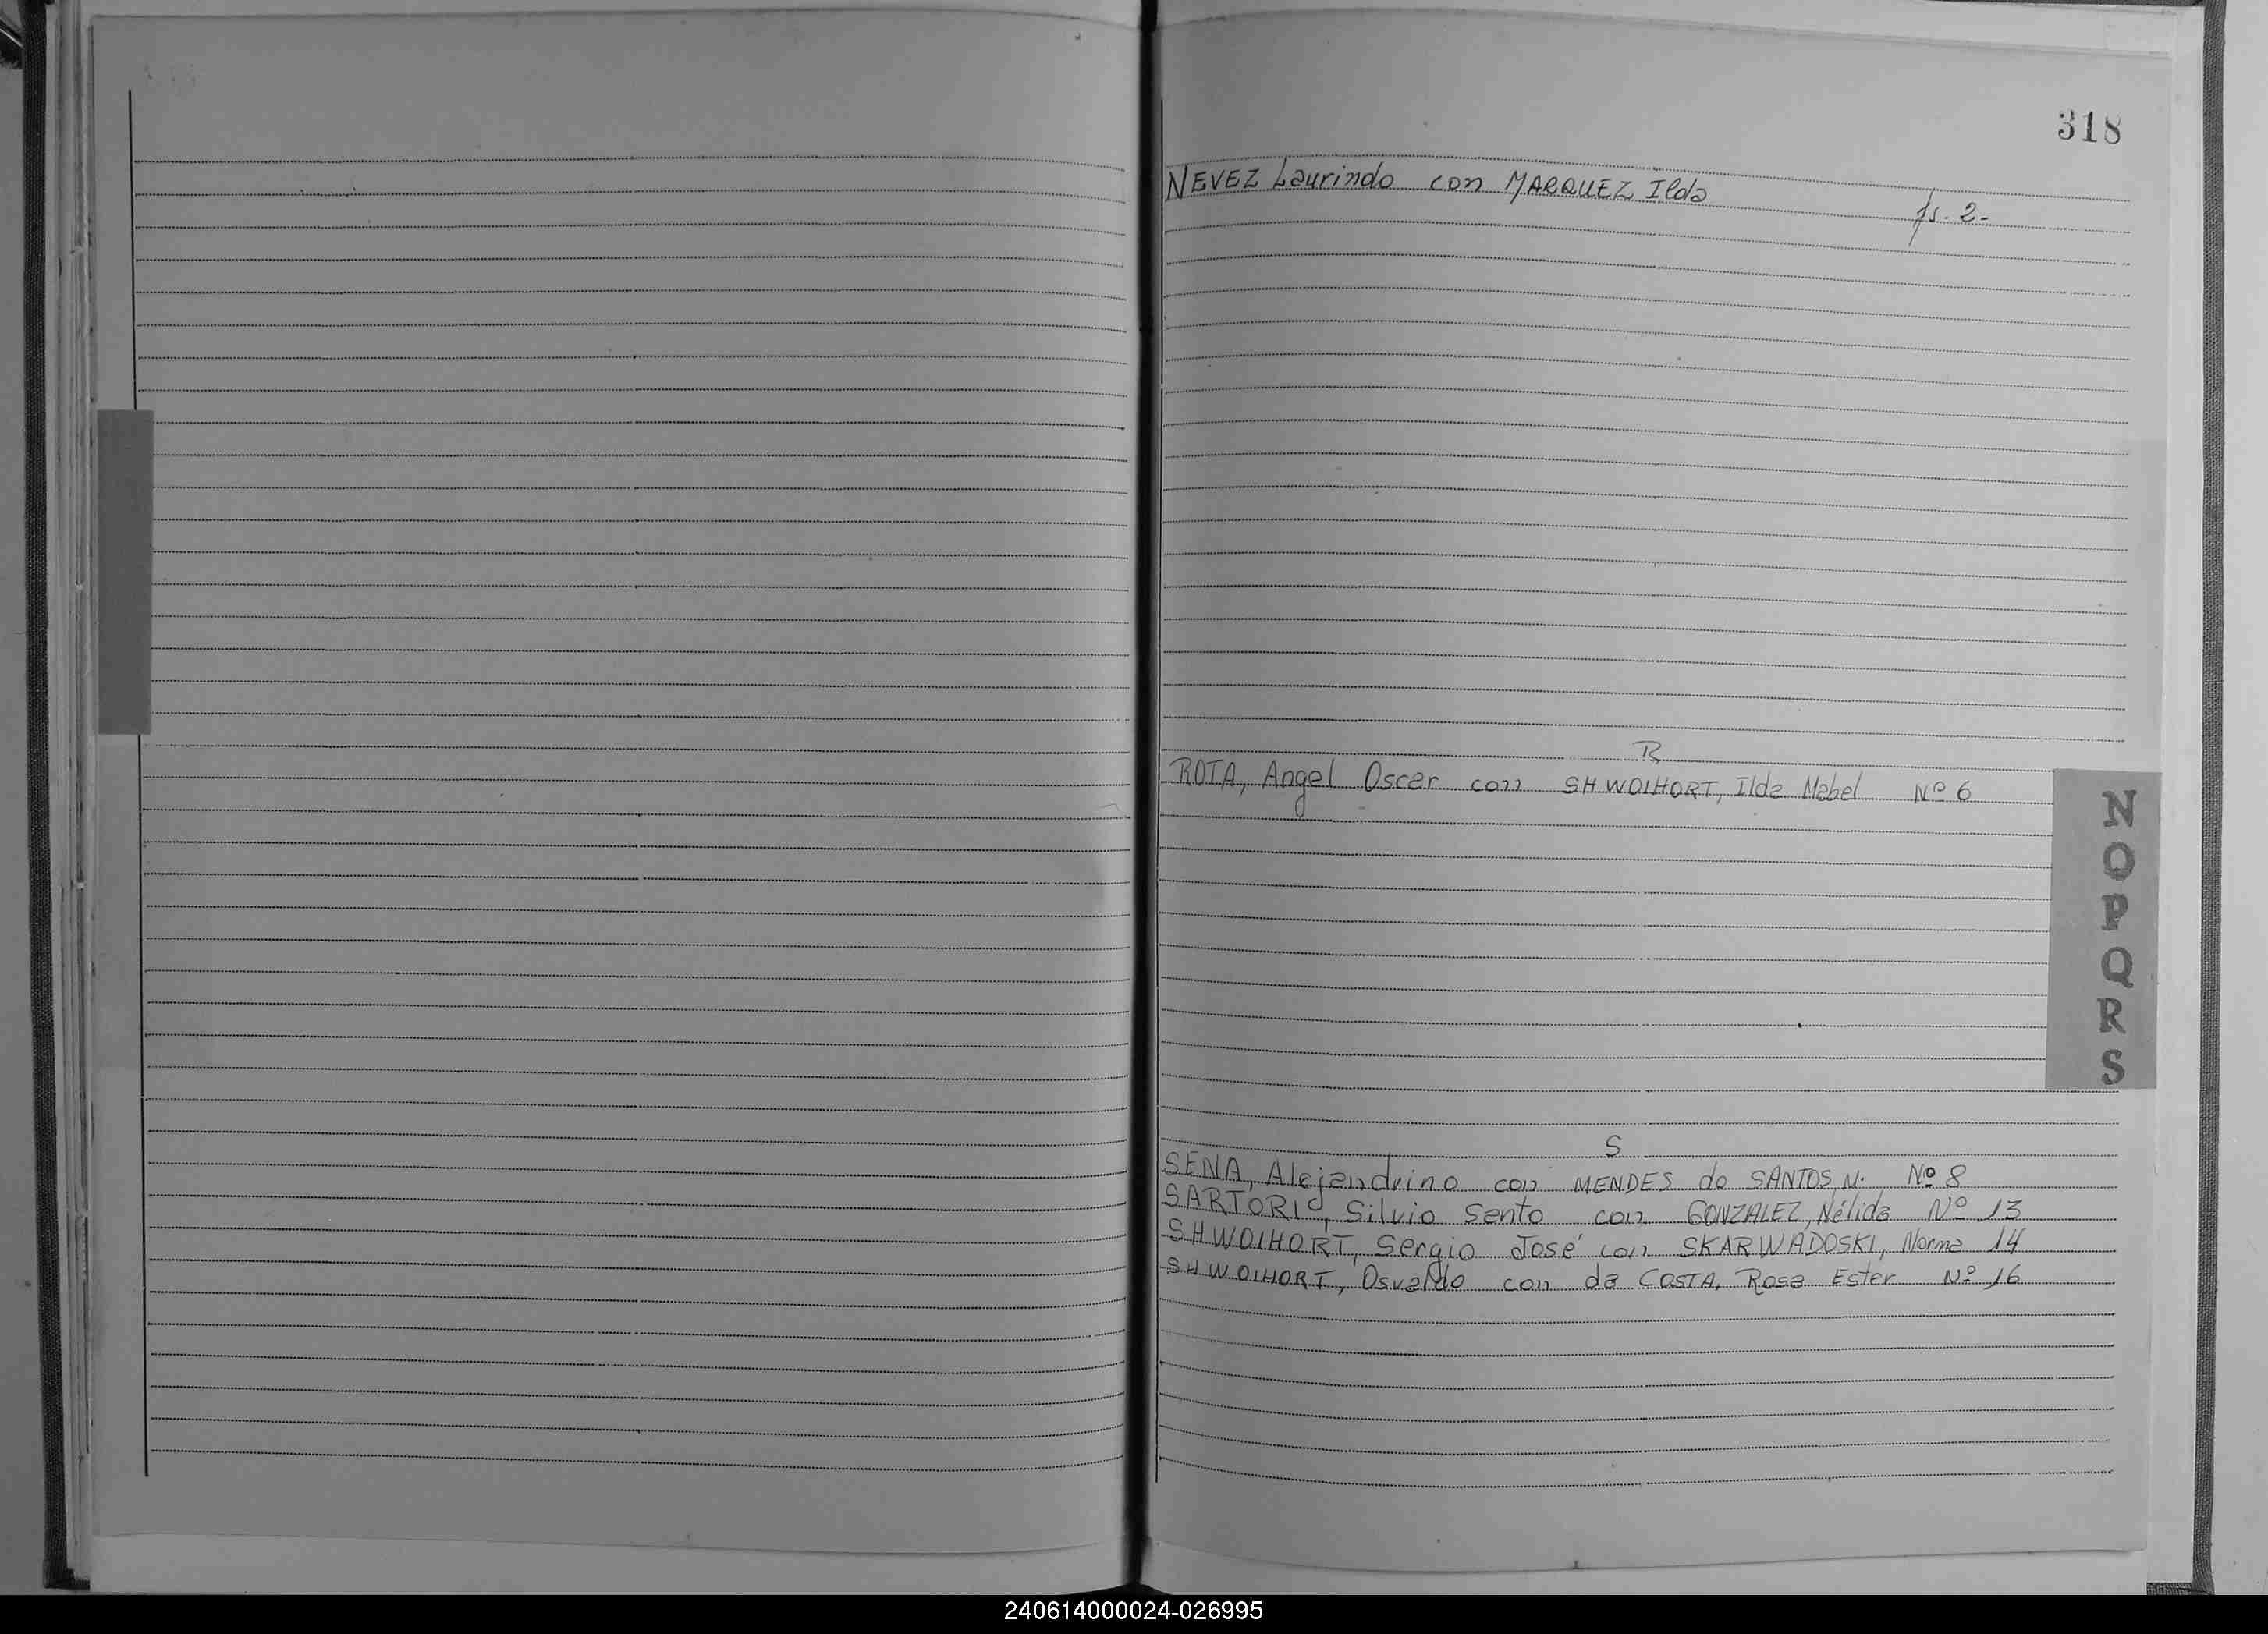 318
NEVEZ Laurindo con MARQUEZ Ilda fs. 2-
R
ROTA, Angel Oscar con SHWOIHORT, Ilda Mabel Nº 6
N
O
P
Q
R
S
S
SENA, Alejandrino con MENDES do SANTOS, N. Nº 8
SARTORIO, Silvio Santo con GONZALEZ, Nélida Nº 13
SHWOIHORT, Sergio José con SKARWADOSKI, Norma 14
SHWOIHORT, Osvaldo con da COSTA, Rosa Ester Nº 16
240614000024-026995